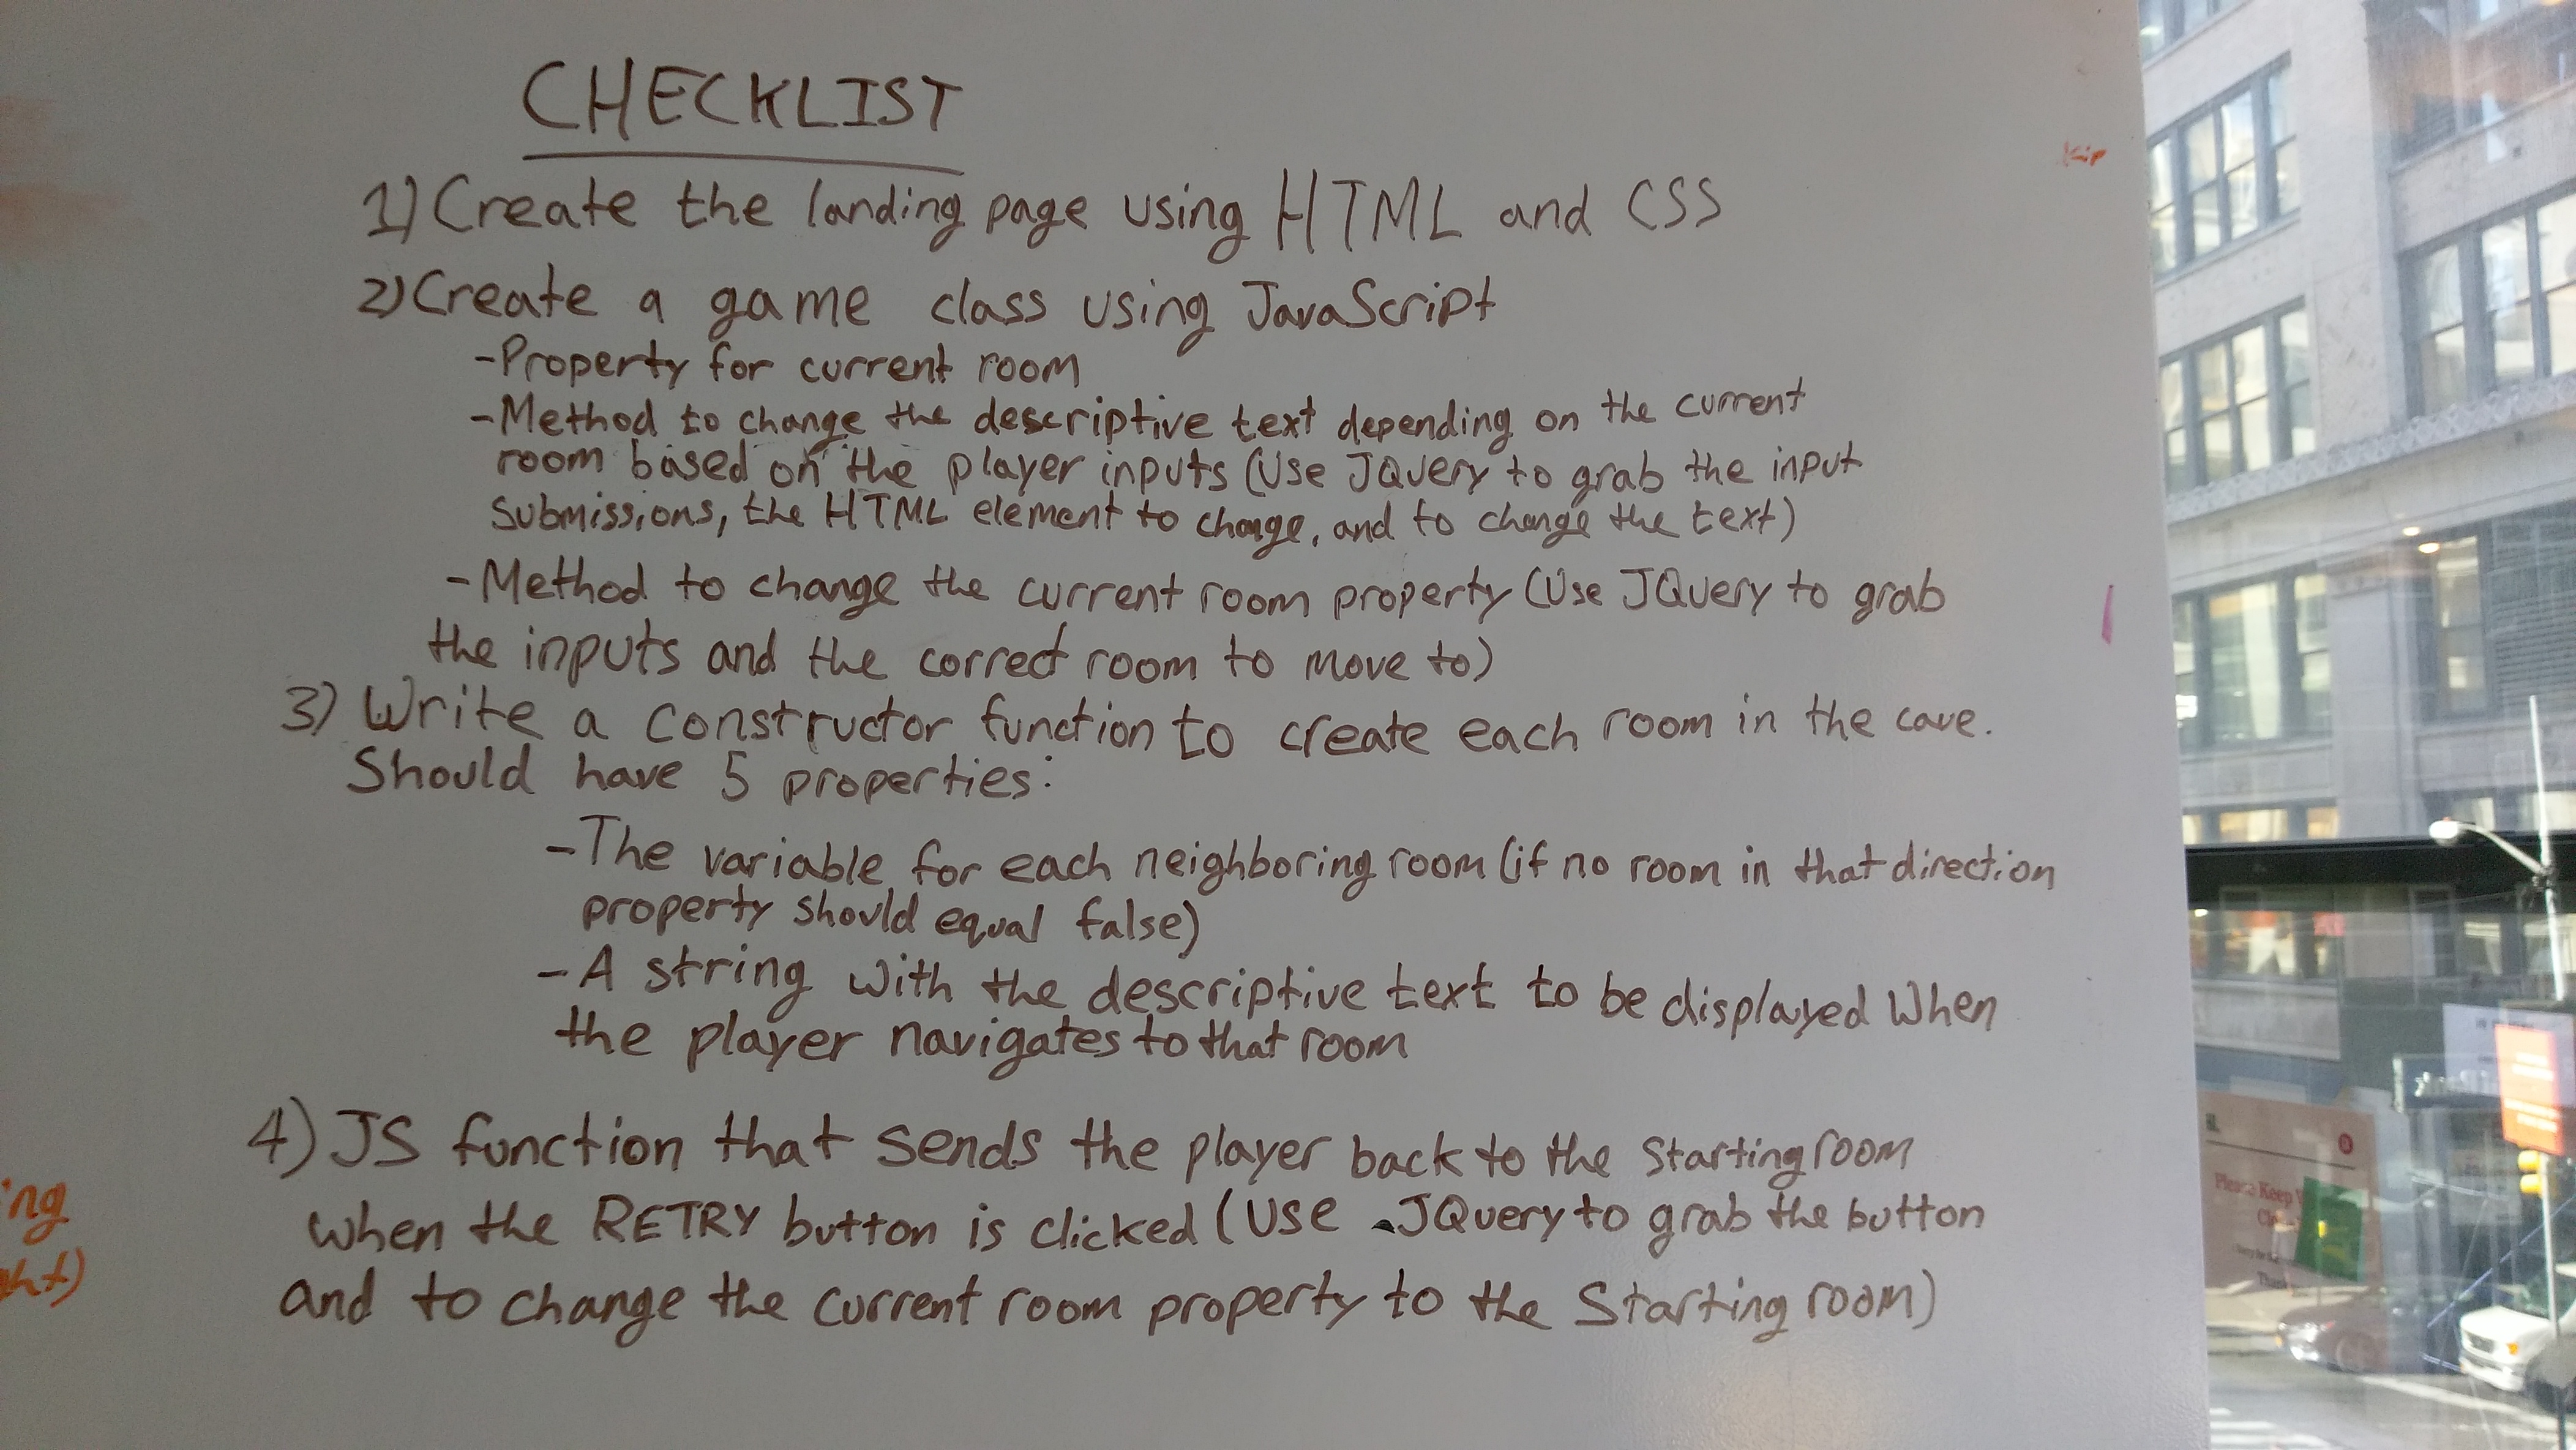 CHECKLIST
1) Create the landing page using HTML and CSS
2) Create a game class using JavaScript
-Property for current room
-Method to change the descriptive text depending on the current
room based on the player inputs (Use JQuery to grab the input
submissions, the HTML element to change, and to change the text)
-Method to change the current room property (Use JQuery to grab
the inputs and the correct room to move to)
3) Write a constructor function to create each room in the cave.
Should have 5 properties:
-The variable for each neighboring room (if no room in that direction
property should equal false)
-A string with the descriptive text to be displayed when
the player navigates to that room
4) JS function that sends the player back to the starting room
when the RETRY button is clicked (Use JQuery to grab the button
and to change the current room property to the starting room)
ing
ht)
Please Keep